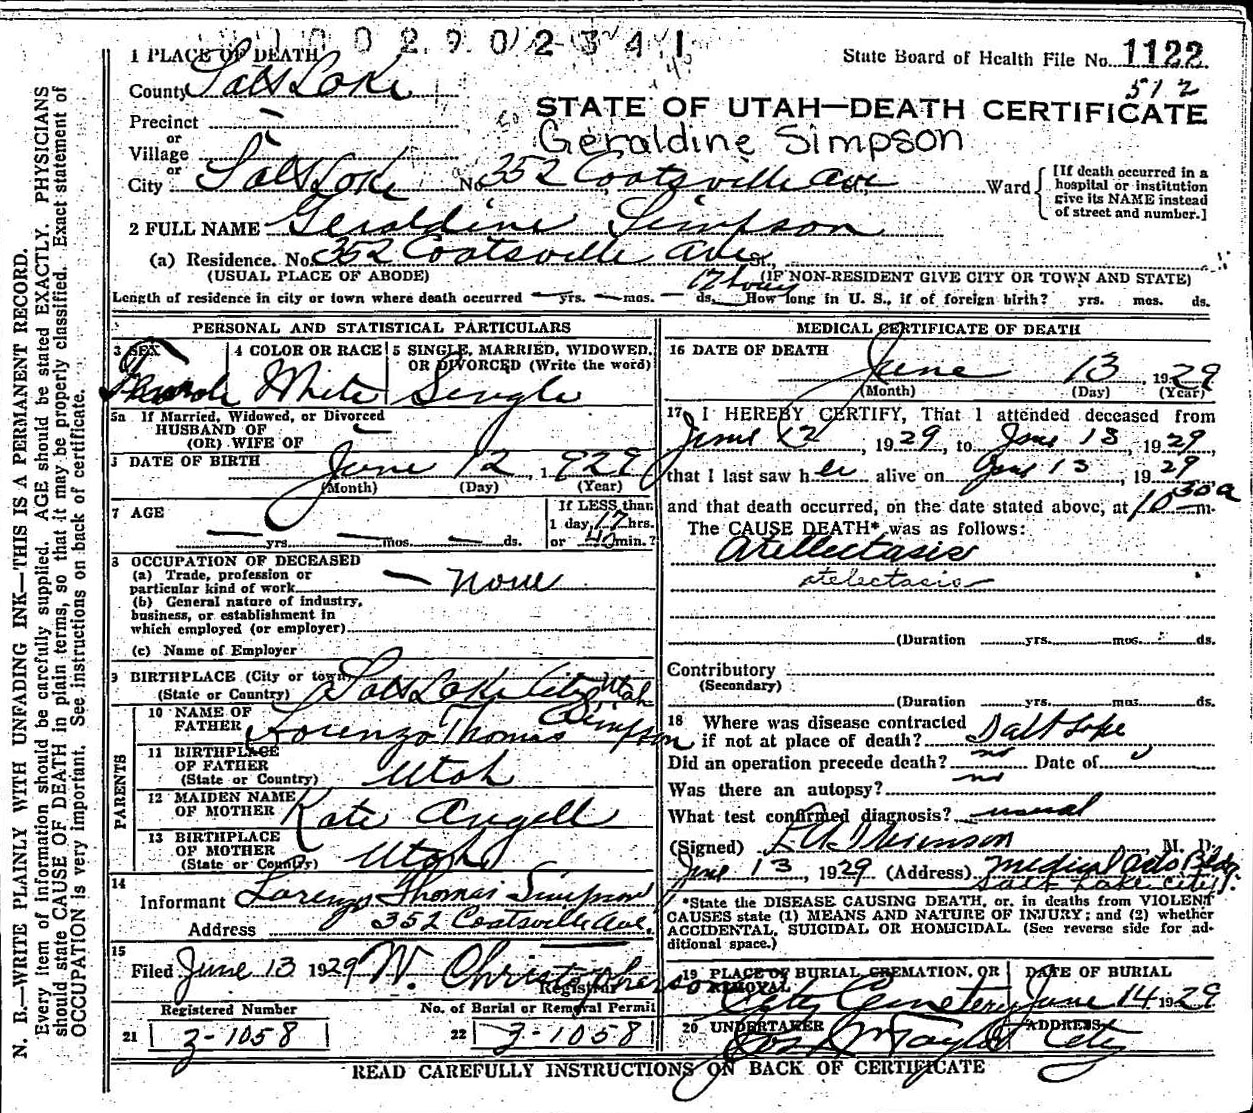 1002902341
1 PLACE OF DEATH
State Board of Health File No. 1122
512
County Salt Lake
STATE OF UTAH—DEATH CERTIFICATE
Precinct
or
Geraldine Simpson
Village
or
City Salt Lake No. 352 Coatsville Ave St., Ward
[If death occurred in a
hospital or institution
give its NAME instead
of street and number.]
2 FULL NAME Geraldine Simpson
(a) Residence. No. 352 Coatsville Ave. St.
(USUAL PLACE OF ABODE) (IF NON-RESIDENT GIVE CITY OR TOWN AND STATE)
17 hours
Length of residence in city or town where death occurred — yrs. — mos. — ds. How long in U. S., if of foreign birth? yrs. mos. ds.
PERSONAL AND STATISTICAL PARTICULARS
3 SEX
4 COLOR OR RACE
5 SINGLE, MARRIED, WIDOWED,
OR DIVORCED (Write the word)
Female White Single
5a If Married, Widowed, or Divorced
HUSBAND OF
(OR) WIFE OF —
DATE OF BIRTH June 12 1929
(Month) (Day) (Year)
7 AGE
— yrs. — mos. — ds.
If LESS than
1 day, 17 hrs.
or 40 min.?
8 OCCUPATION OF DECEASED
(a) Trade, profession or
particular kind of work — none
(b) General nature of industry,
business, or establishment in
which employed (or employer)
(c) Name of Employer
9 BIRTHPLACE (City or town)
(State or Country) Salt Lake City Utah
PARENTS
10 NAME OF
FATHER Lorenzo Thomas Simpson
11 BIRTHPLACE
OF FATHER
(State or Country) Utah
12 MAIDEN NAME
OF MOTHER Kate Angell
13 BIRTHPLACE
OF MOTHER
(State or Country) Utah
14
Informant Lorenzo Thomas Simpson
Address 352 Coatsville Ave.
15
Filed June 13 1929 W. Christopherson
Registrar
Registered Number
No. of Burial or Removal Permit
21 3-1058 22 3-1058
MEDICAL CERTIFICATE OF DEATH
16 DATE OF DEATH
June 13, 1929
(Month) (Day) (Year)
17 I HEREBY CERTIFY, That I attended deceased from
June 12, 1929, to June 13, 1929,
that I last saw her alive on June 13, 1929
and that death occurred, on the date stated above, at 10 30 a m.
The CAUSE DEATH* was as follows:
Atellectasis
atelectasis
(Duration yrs. mos. ds.
Contributory
(Secondary)
(Duration yrs. mos. ds.
18 Where was disease contracted
if not at place of death? Salt Lake
Did an operation precede death? no Date of
Was there an autopsy? no
What test confirmed diagnosis? usual
(Signed) M. D.
June 13, 1929 (Address) Medical Arts Bldg.
Salt Lake City.
*State the DISEASE CAUSING DEATH, or, in deaths from VIOLENT
CAUSES state (1) MEANS AND NATURE OF INJURY; and (2) whether
ACCIDENTAL, SUICIDAL OR HOMICIDAL. (See reverse side for ad-
ditional space.)
19 PLACE OF BURIAL, CREMATION, OR
REMOVAL
City Cemetery
DATE OF BURIAL
June 14 1929
20 UNDERTAKER
Taylor
ADDRESS
City
READ CAREFULLY INSTRUCTIONS ON BACK OF CERTIFICATE
N. B.—WRITE PLAINLY WITH UNFADING INK—THIS IS A PERMANENT RECORD.
Every item of information should be carefully supplied. AGE should be stated EXACTLY. PHYSICIANS
should state CAUSE OF DEATH in plain terms, so that it may be properly classified. Exact statement of
OCCUPATION is very important. See instructions on back of certificate.